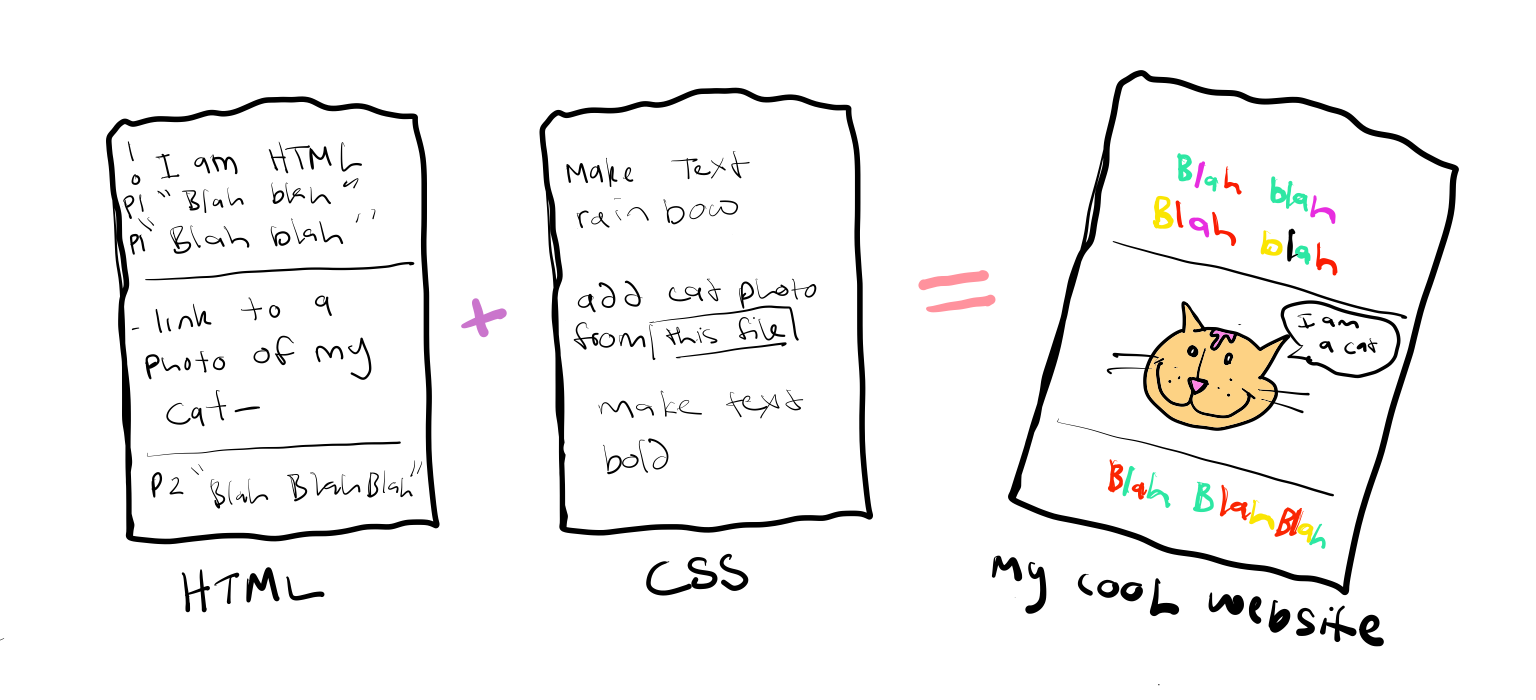 ! I am HTML
P1 "Blah blah"
P1 "Blah blah"
- link to a
photo of my
cat -
P2 "Blah Blah Blah"
HTML
+
Make Text
rainbow
add cat photo
from this file
make text
bold
CSS
=
Blah blah
Blah blah
I am
a cat
Blah Blah Blah
My cool website